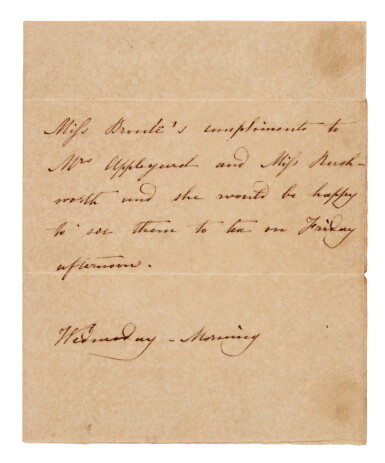 Miss Brontë's compliments to
Mrs Appleyard and Miss Rush-
worth and she would be happy
to see them to tea on Friday
afternoon.
Wednesday - Morning